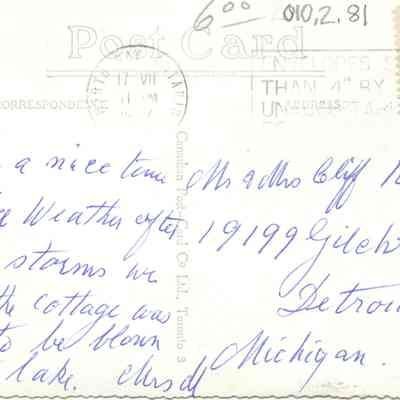 6.00 010.2.81
Post Card
17 VII
THAN 4" BY
CORRESPONDENCE
ADDRESS
Canadian Post Card Co Ltd., Toronto
a nice time
Weather after
storms we
the cottage was
to be blown
lake.
Mr & Mrs Cliff
19199 Gilch
Detroi
Michigan.